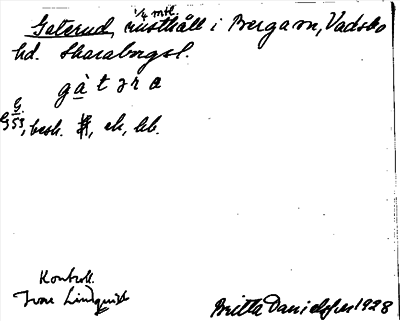 1/4 mtl.
Gaterud, rusthåll i Berga sn, Vadsbo
hd. Skaraborgsl.
gà t ə r a
G.
G 53, besk. #, ek, bb.
Kontroll.
Ivar Lindquist
Britta Danielsson 1928